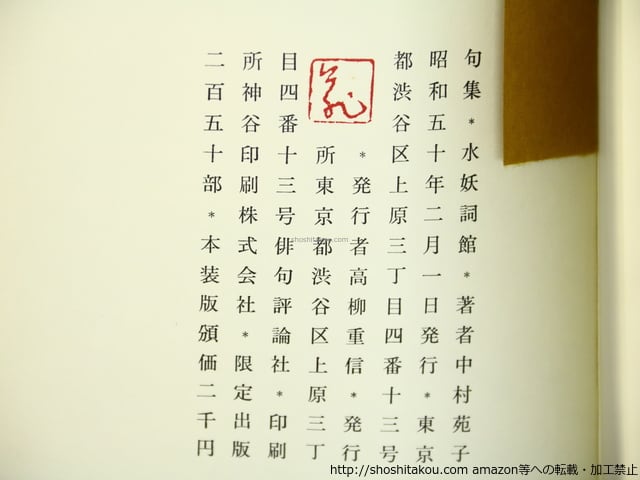 句集*水妖詞館*著者中村苑子
昭和五十年二月一日発行*東京
都渋谷区上原三丁目四番十三号
*発行者高柳重信*発行
所東京都渋谷区上原三丁
目四番十三号俳句評論社*印刷
所神谷印刷株式会社*限定出版
二百五十部*本装版頒価二千円
shoshitakou.com
http://shoshitakou.com amazon等への転載・加工禁止